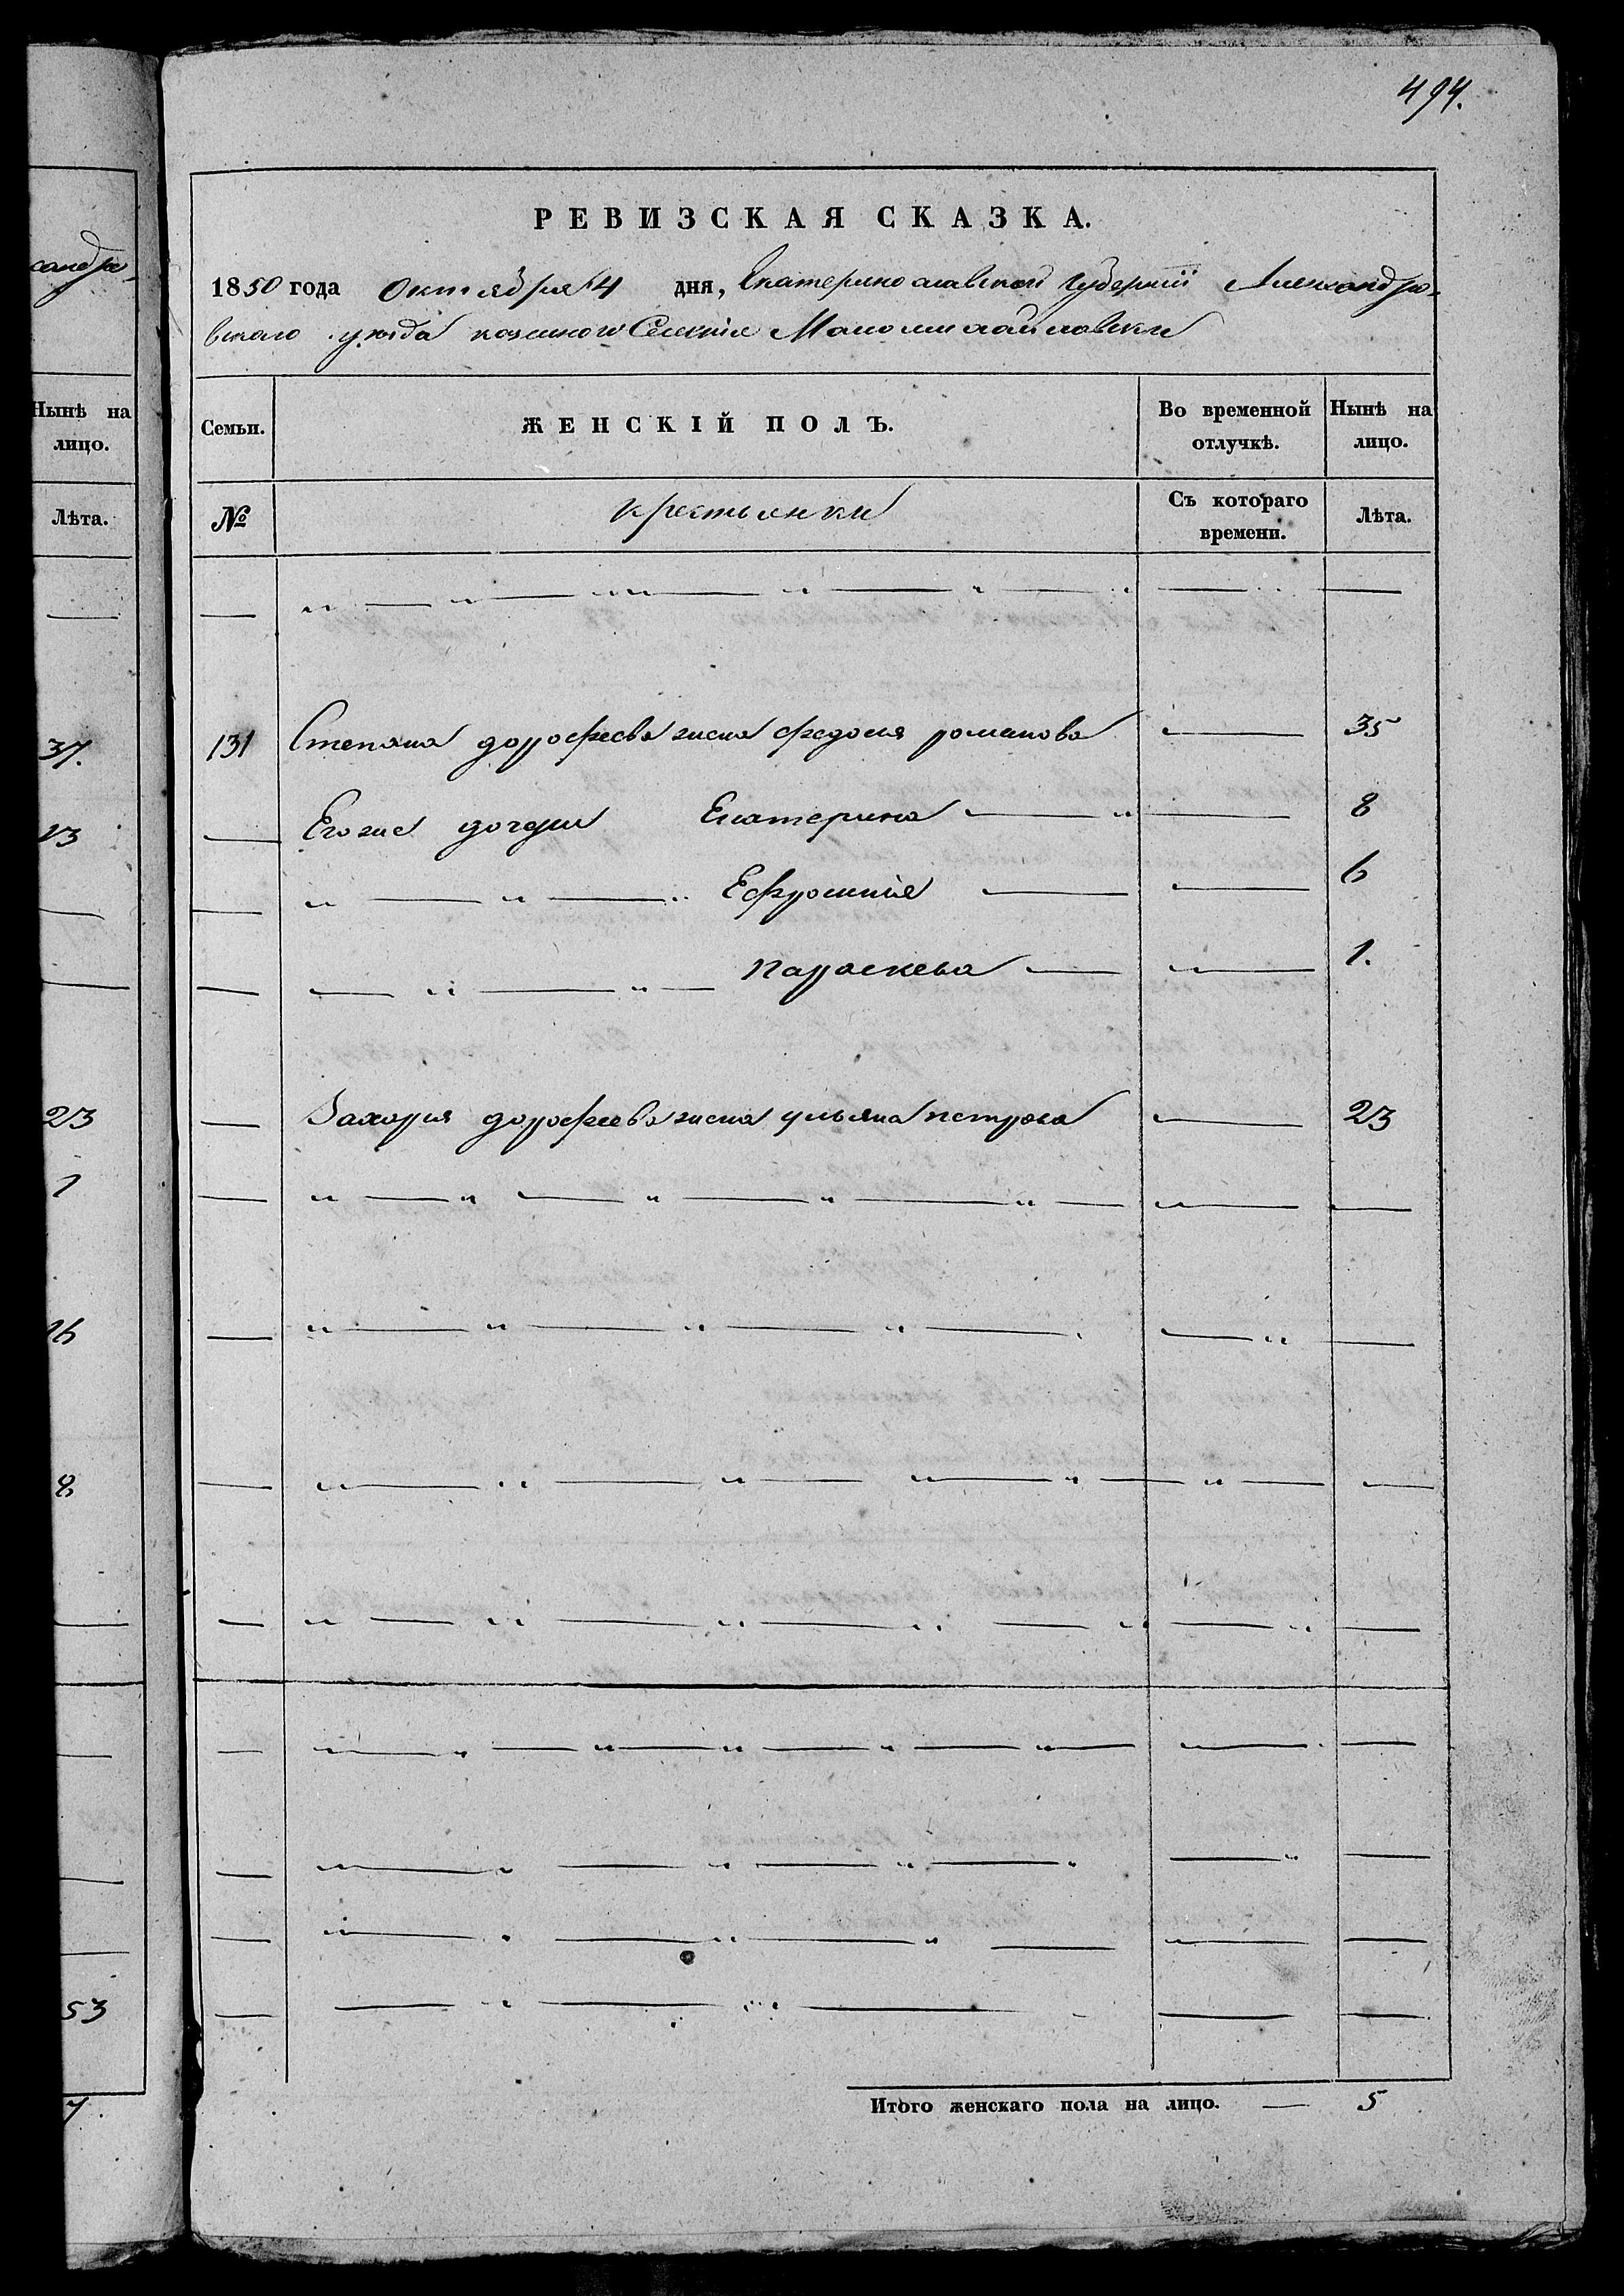 494.
РЕВИЗСКАЯ СКАЗКА.
1850 года Октября 4 дня, Екатеринославской Губернии Александро-
вскаго уезда казенного Селения Маломихайловки
Семьи.
ЖЕНСКІЙ ПОЛЪ.
Во временной отлучкѣ.
Нынѣ на лицо.
№
крестьянки
Съ котораго времени.
Лѣта.
131 Степана дорофеева жена федосия романова 35
Егоже дочери Екатерина 8
Ефросиния 6
Параскева 1.
Захария дорофеева жена ульяна петрова 23
Итого женскаго пола на лицо. — 5
сандро-
Нынѣ на
лицо.
Лѣта.
37.
13
23
1
16
8
53
7.